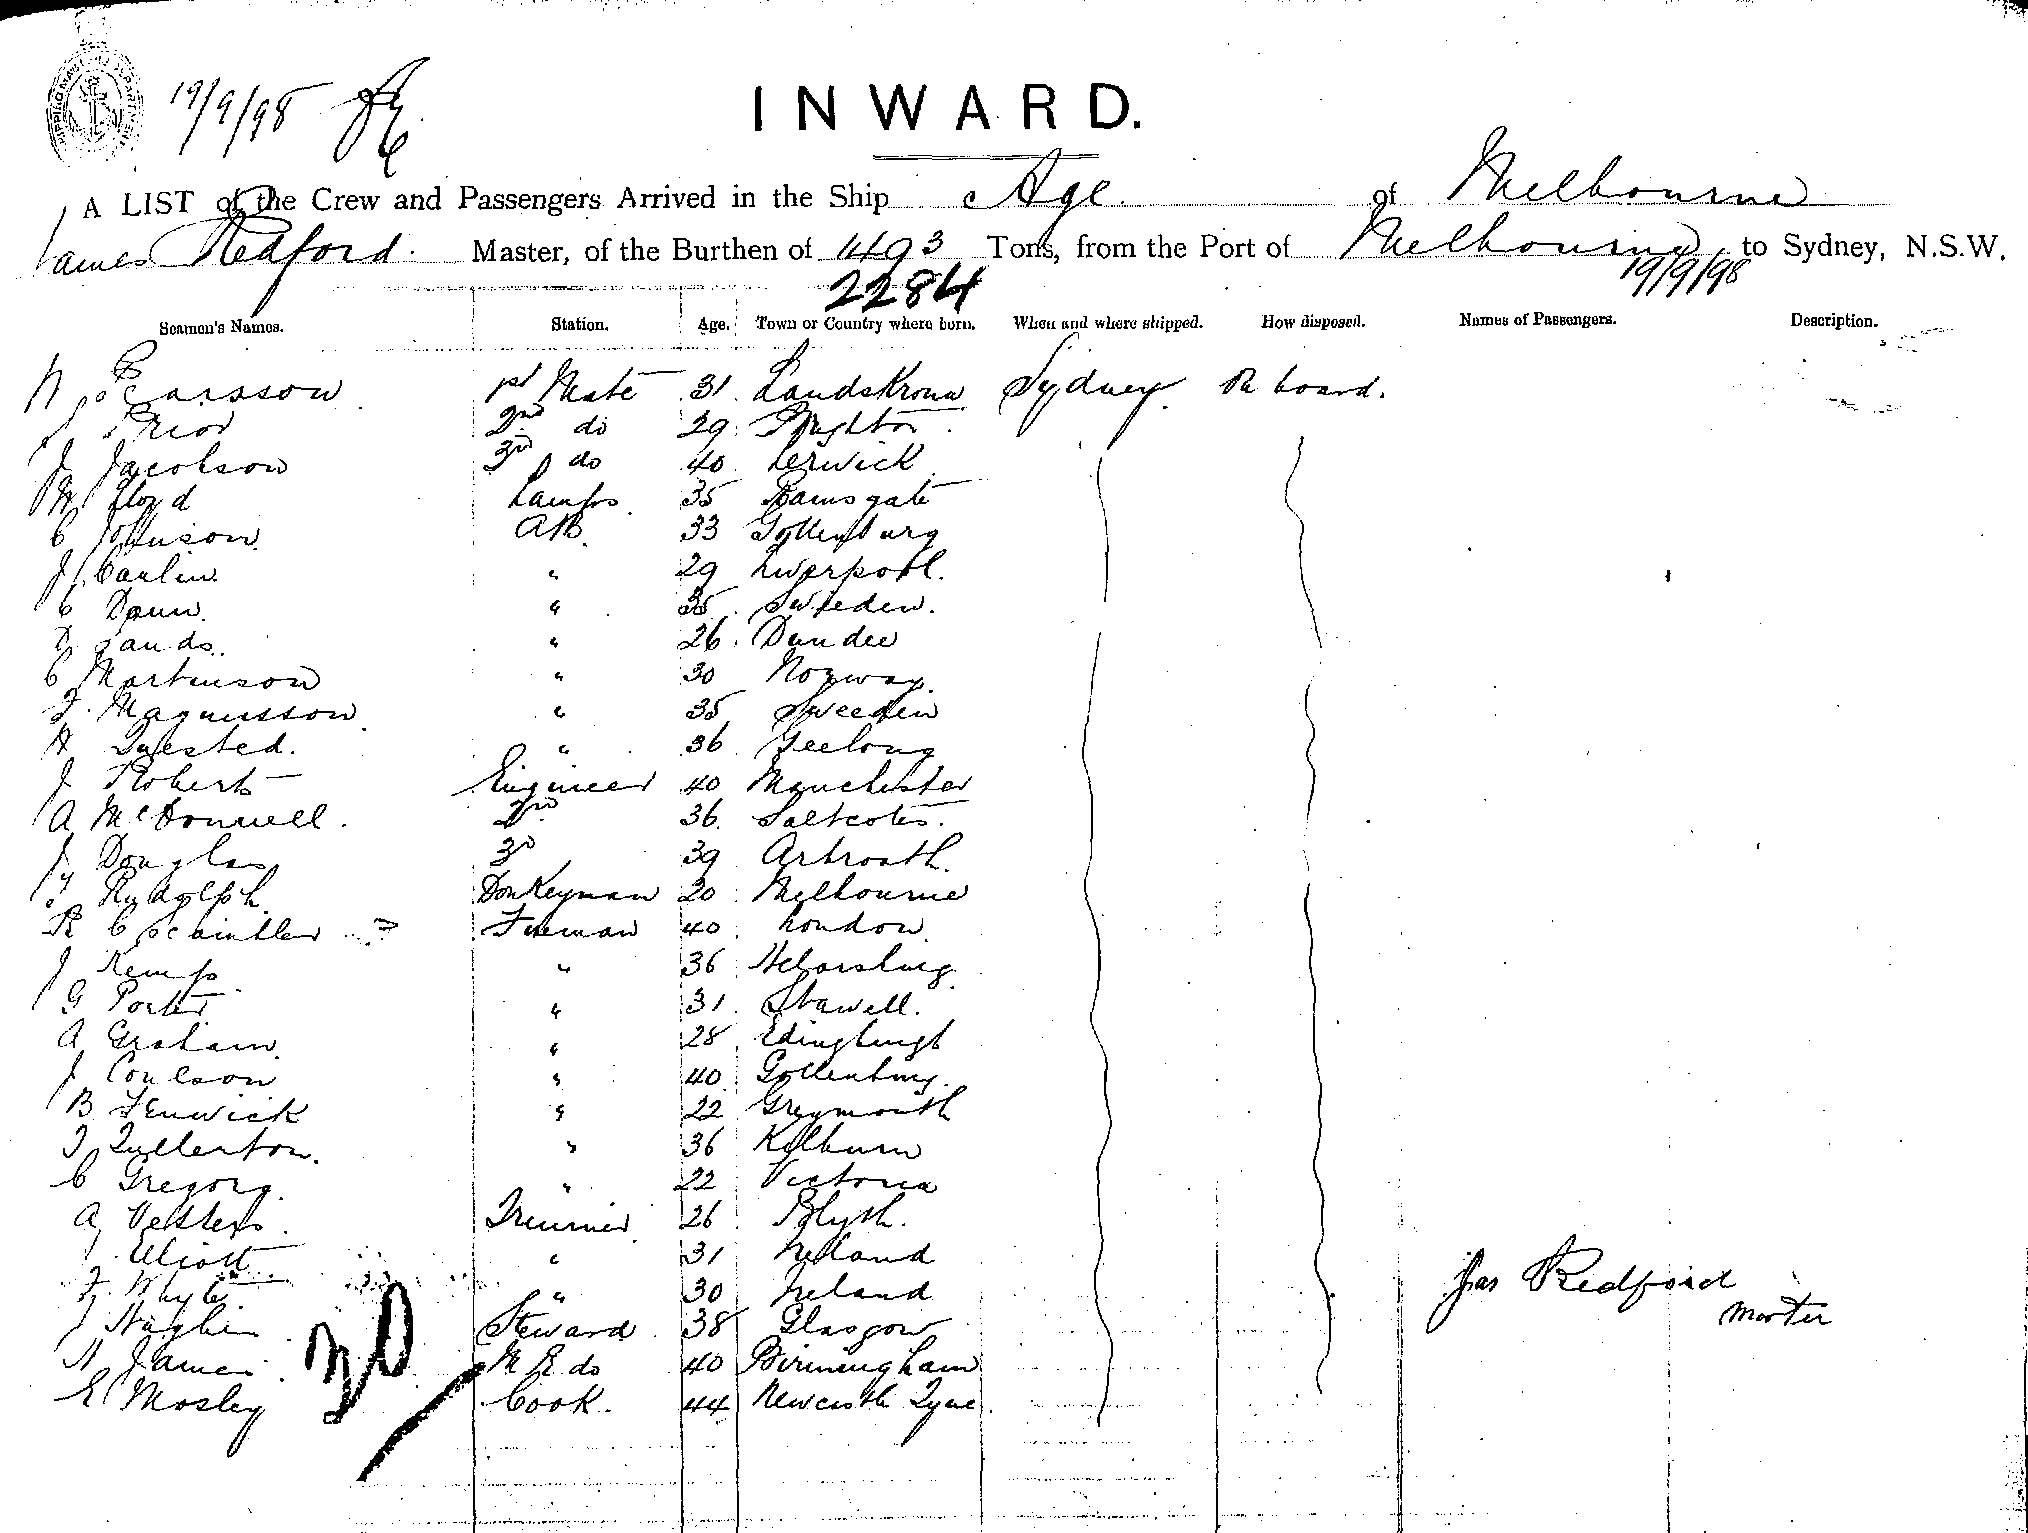 19/9/98
INWARD.
A LIST of the Crew and Passengers Arrived in the Ship Age of Melbourne
James Redford. Master, of the Burthen of 1493 Tons, from the Port of Melbourne to Sydney, N.S.W.
2284 19/9/98
Seamen's Names. Station. Age. Town or Country where born. When and where shipped. How disposed. Names of Passengers. Description.
N Pearsson 1st Mate 31 Landskrona Sydney. On board.
Prior 2nd do 29 Brighton
J Jacobson 3rd do 40 Lerwick
W Floyd Lamps. 35 Ramsgate
C Johnson. AB. 33 Gottenburg
J Carlin. " 29 Liverpool.
C Dann. " 35 Sweeden.
D Sands. " 26 Dundee
C Martinson " 30 Norway.
F. Magnusson " 35 Sweeden
H Quested. " 36 Geelong
J Roberts Engineer 40 Manchester
A McDonnell. 2nd 36 Saltcotes.
J Douglas 3rd 39 Arbroath.
Rudolph. Donkeyman 20 Melbourne
R C Fireman 40 London
J Kemp " 36
G Porter " 31 Stawell.
A Graham. " 28 Edinghurgh
J Coulson " 40 Gottenburg.
B Fenwick " 22 Greymouth
J Fullerton. " 36 Kilburn
C Gregory. " 22 Victoria
A Vetters. Trimmer 26 Blyth.
J Eliott " 31 Ireland
F. Whyte " 30 Ireland
J Hughes Steward 38 Glasgow
H James M R do 40 Birmingham
E Mosley Cook. 44 Newcastle Tyne.
30
Jas Redford
Master